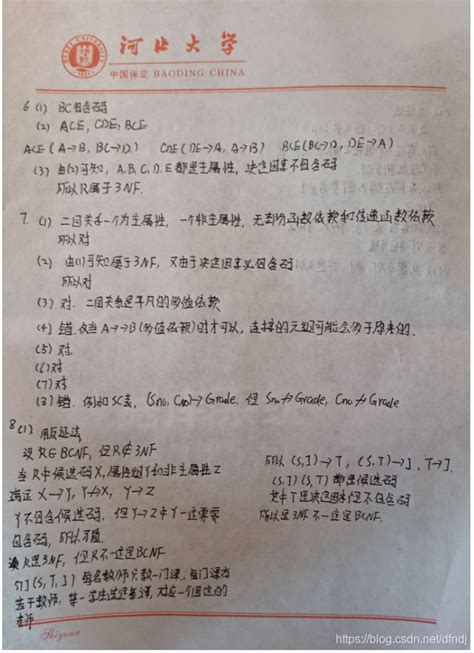 河北大学
中国保定 BAODING CHINA
6 (1) BC包含码
(2) ACE, CDE, BCE
ACE (A→B, BC→D) CDE (DE→A, A→B) BCE (BC→D, DE→A)
(3) 由(2)可知, A, B, C, D, E都是主属性, 决定因素不包含码
所以R属于3NF.
7. (1) 二目关系一个为主属性, 一个非主属性, 无部分函数依赖和传递函数依赖
所以对
(2) 由(1)可知属于3NF, 又由于决定因素必包含码
所以对
(3) 对. 二目关系是平凡的多值依赖
(4) 错. 只当A→→B(多值依赖)时才可以, 连接的元组可能会多于原来的.
(5) 对.
(6) 对
(7) 对
(8) 错. 例如SC表, (Sno, Cno)→Grade, 但 Sno↛Grade, Cno↛Grade
8 (1). 用反证法
设R∈BCNF, 但R∉3NF
当R中候选码X, 属性组Y和非主属性Z
满足 X→Y, Y↛X, Y→Z
Y不包含候选码, 但Y→Z中Y一定需要
包含码, 所以矛盾
R是3NF, 但R不一定是BCNF
STJ(S, T, J) 每名教师只教一门课, 每门课有
若干教师, 某一学生选定某课, 对应一个固定的
老师
所以 (S,J)→T, (S,T)→J, T→J.
(S,J) (S,T) 都是候选码
其中T是决定因素但不包含码
所以是3NF不一定是BCNF.
Shiyuan
https://blog.csdn.net/dfndj